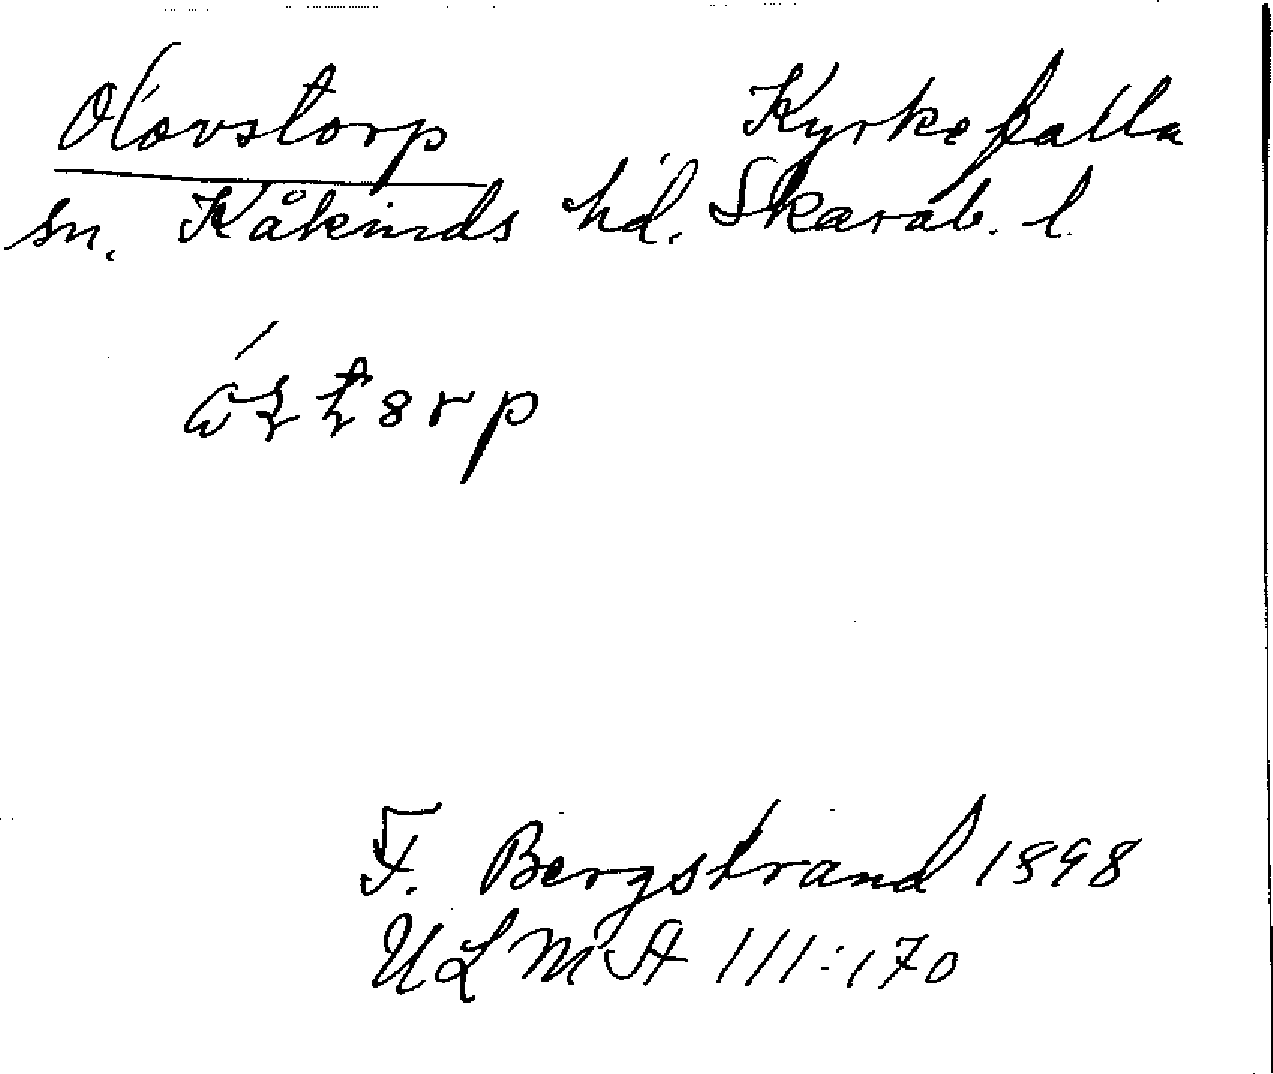 Olovstorp Kyrkefalla
sn. Kåkinds hd. Skarab. l.
F. Bergstrand 1898
ULMA 111:170